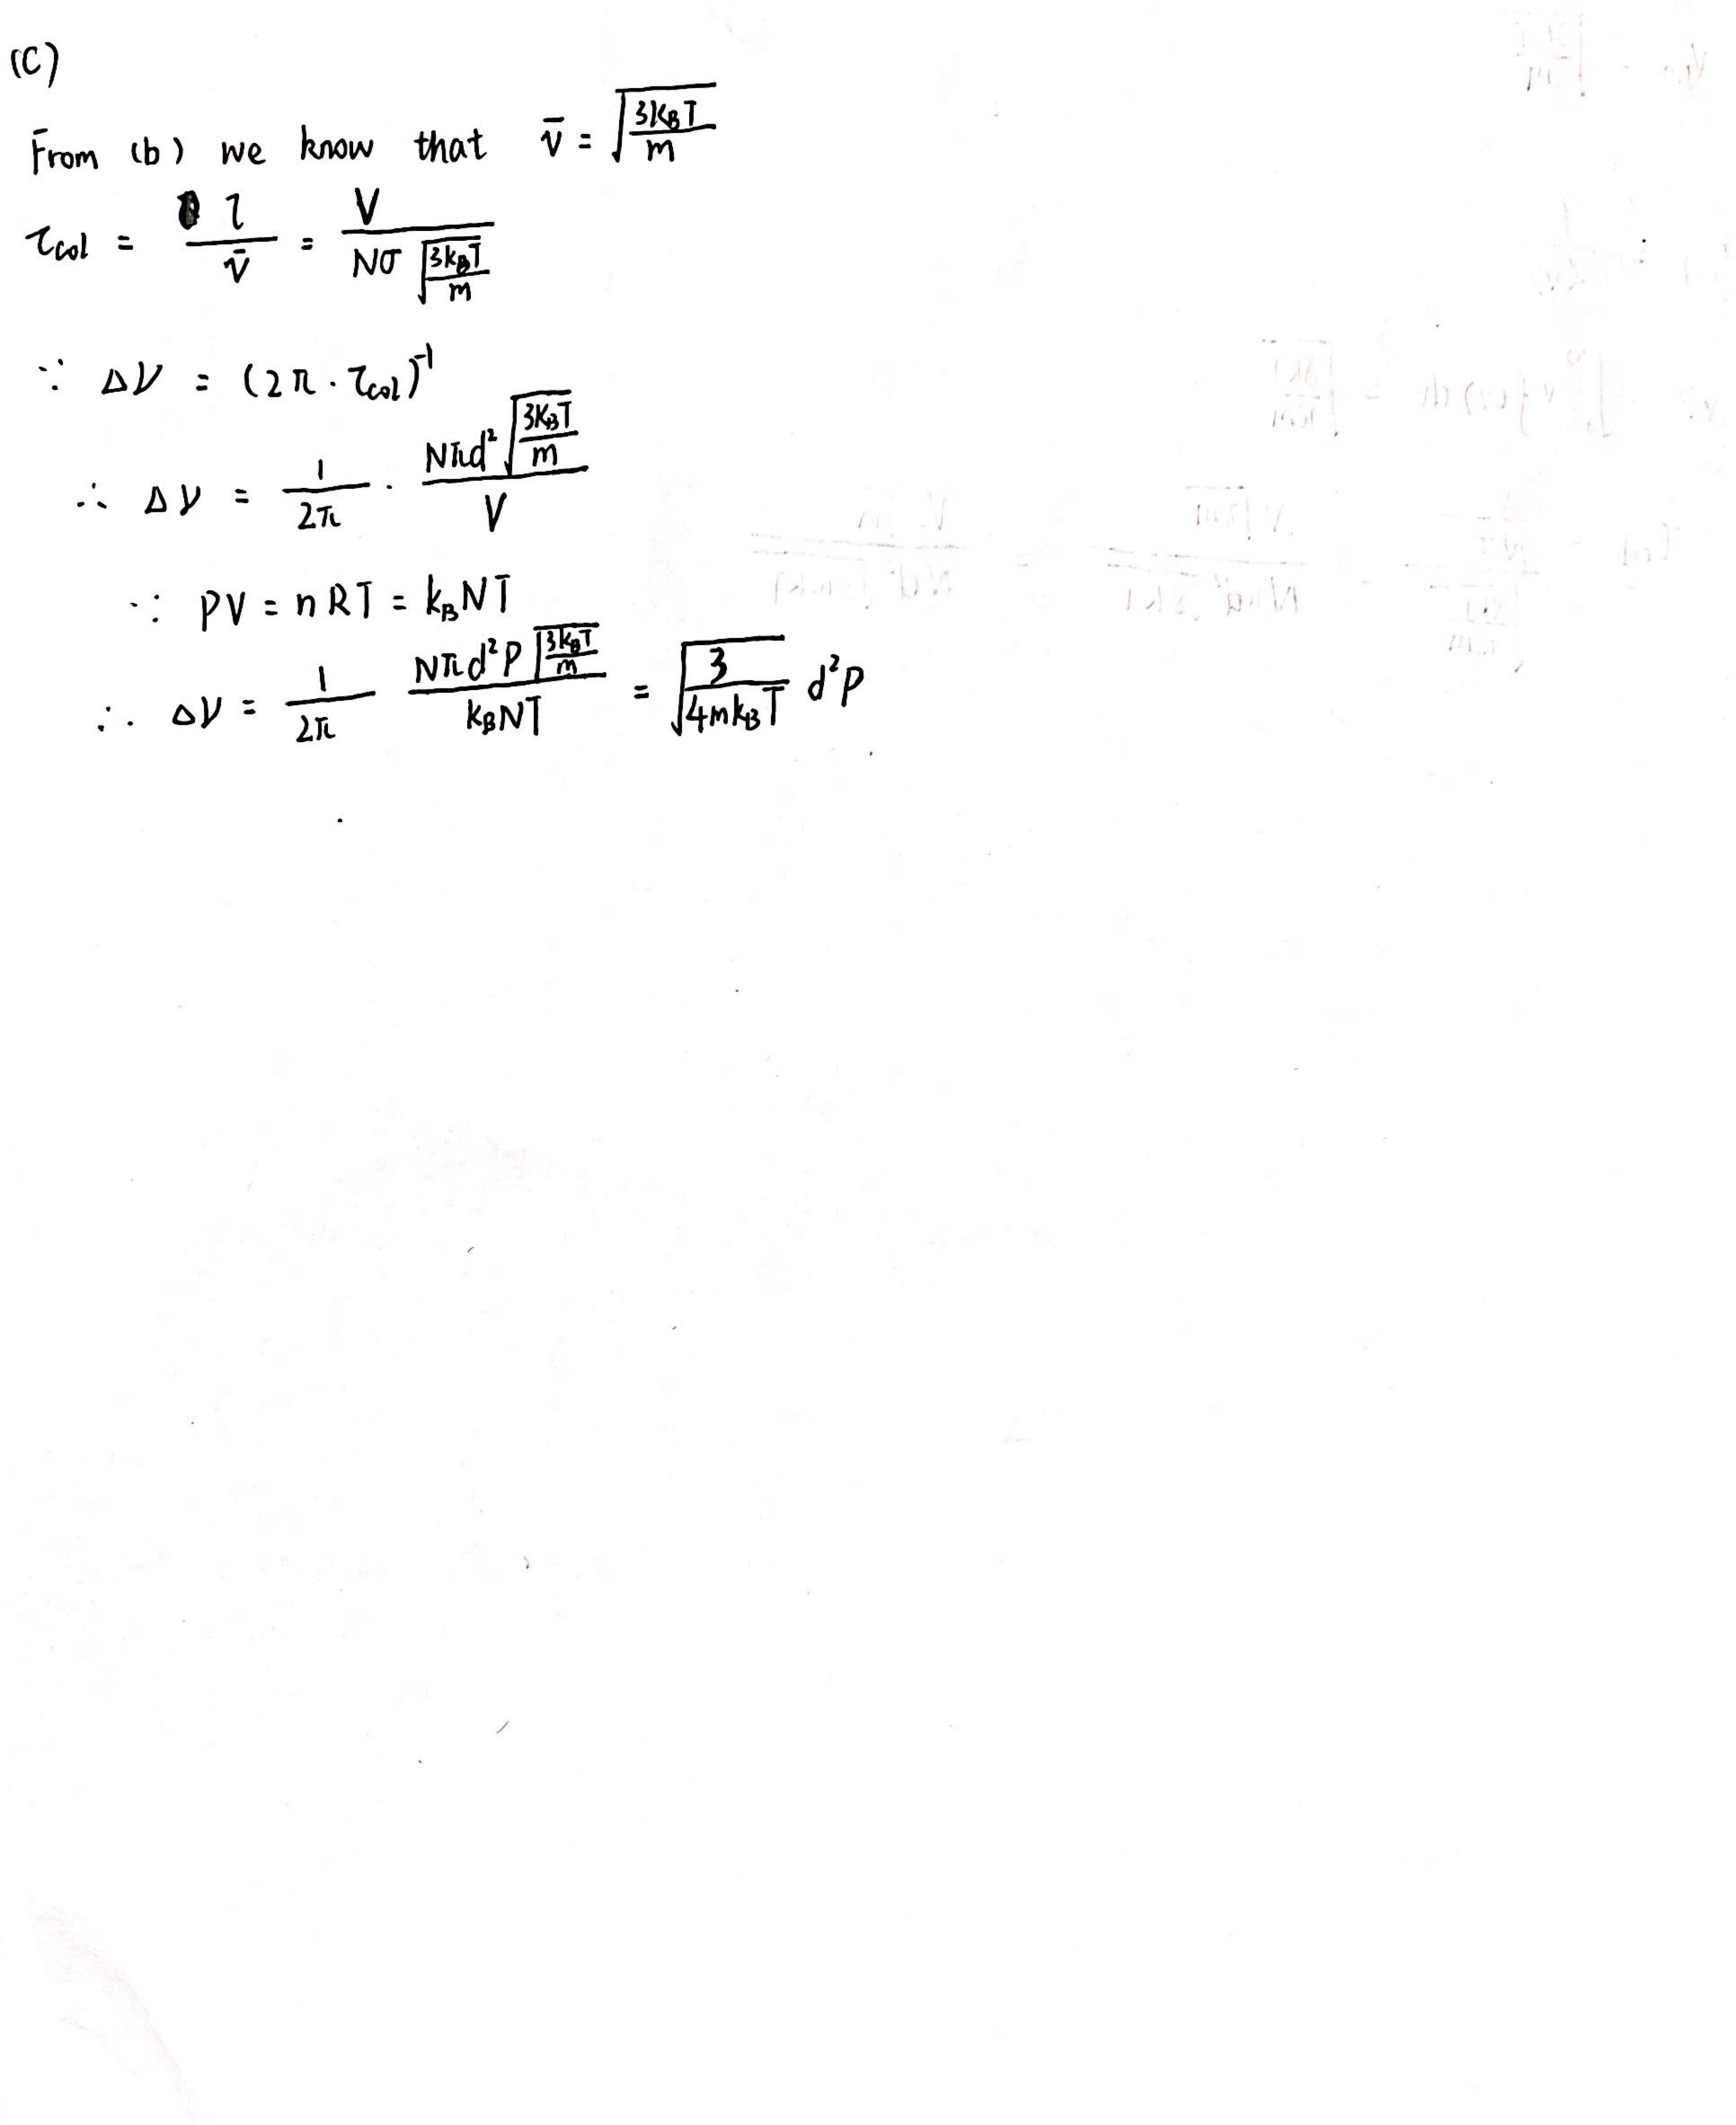 (C)
From (b) we know that v̄ = √(3k_BT/m)
τ_col = l/v̄ = V/(Nσ√(3k_BT/m))
∵ Δν = (2π·τ_col)⁻¹
∴ Δν = 1/2π · Nπd²√(3k_BT/m)/V
∵ PV = nRT = k_BNT
∴ Δν = 1/2π Nπd²P√(3k_BT/m)/(k_BNT) = √(3/(4mk_BT)) d²P